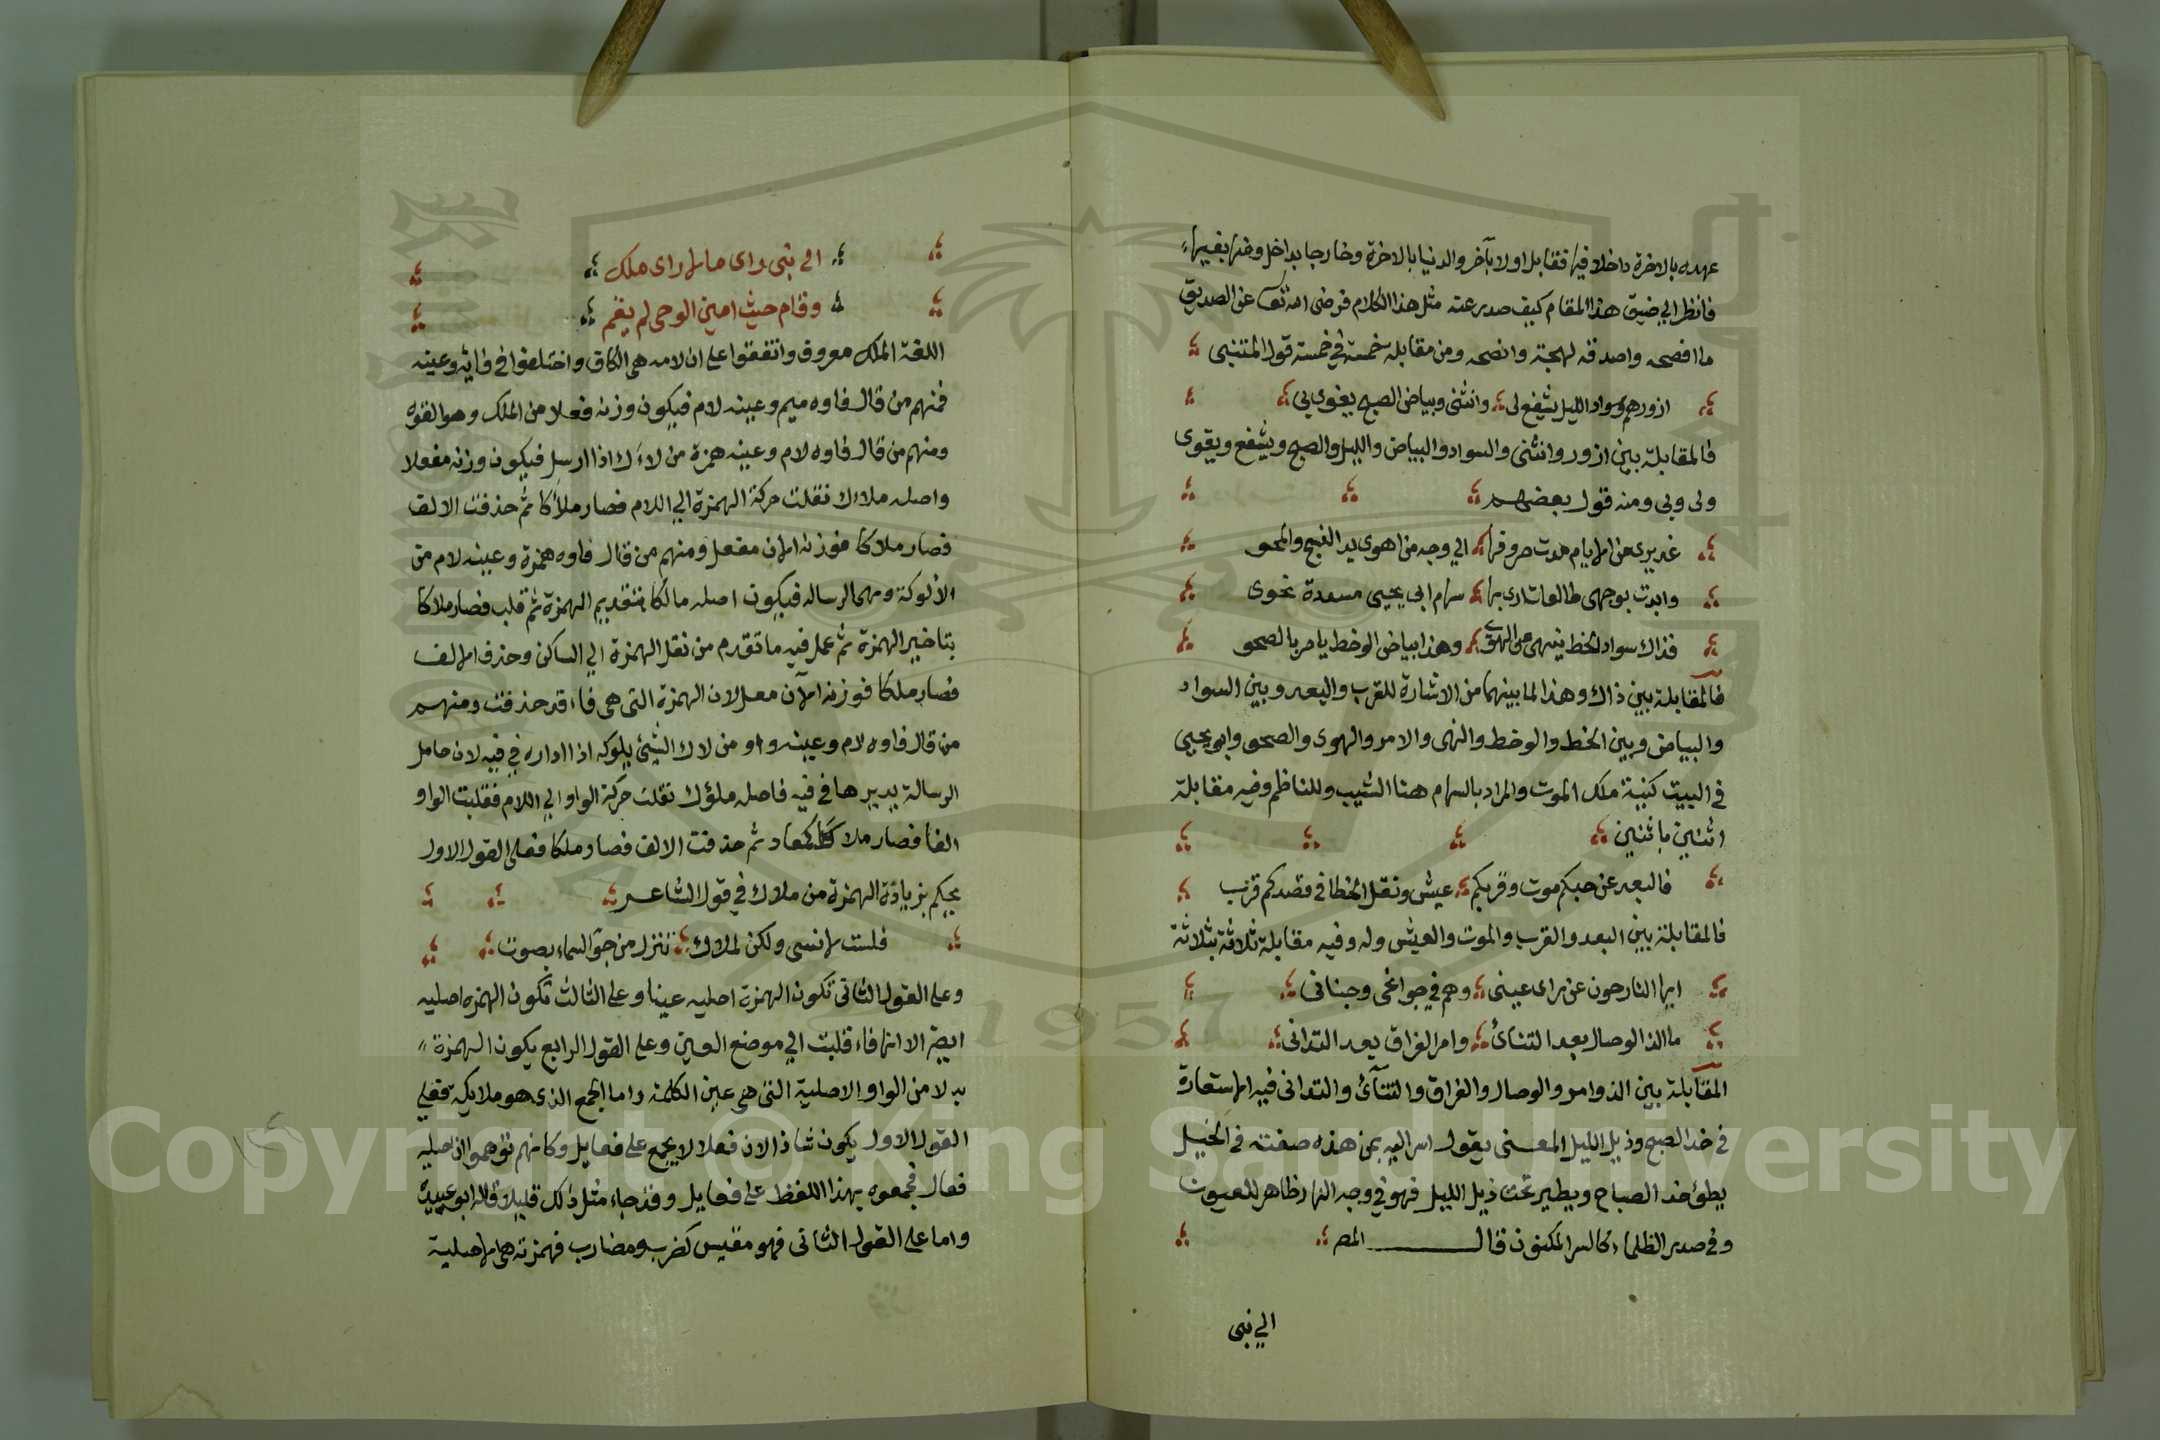 عهده بالاخرة داخلا فيها فقابل اولا بآخر والدنيا بالاخرة وخارجا بداخل ومنها بفيها
فانظر الي ضيق هذا المقام كيف صدر عنه مثل هذا الكلام فرضى الله تعا عن الصديق
ما افصحه واصدقه لهجة وانصحه ومن مقابله خمسة في خمسة قول المتنبى
ازورهم وسواد الليل يشفع لى وانثنى وبياض الصبح يغرى بي
فالمقابلة بين ازور وانثنى والسواد والبياض والليل والصبح ويشفع ويغوى
ولى وبى ومنه قول بعضهم
الي وجه من اهوى يد النسخ والمحو
وابدت بوجهى طالعات ارى بها سهام ابى يحيى مسددة نحوى
فذاك سواد الخط ينهى عن الهوى وهذا بياض الوخط يامر بالصحو
فالمقابلة بين ذاك وهذا لما بينهما من الاشارة للقرب والبعد وبين السواد
والبياض وبين الخط والوخط والنهى والامر والهوى والصحو وابو يحيى
في البيت كنية ملك الموت والمراد بالسهام هنا الشيب وللناظم وفيه مقابلة
اثنين باثنين
فالبعد عن حبكم موت وقربكم عيش ونقل الخطا في قصدكم قرب
فالمقابلة بين البعد والقرب والموت والعيش وله وفيه مقابلة ثلاثة بثلاثة
ايها النازحون عن مراى عينى وهم في جوانحى وجنانى
ما الذ الوصال بعد التنائ وامر الفراق بعد التدانى
المقابلة بين الذ وامر والوصال والفراق والتنآئ والتدانى فيه الاستعارة
في خد الصبح وذيل الليل المعنى يقول اسر اليه بمن هذه صفته في الخيل
يطؤ خد الصباح ويطير تحت ذيل الليل فهو في وجه النهار ظاهر للعيون
وفي صدر الظلماء كالسر المكنون قال المص
الي نبى
الي نبى راى ما لا راى ملك
وقام حيث امين الوحى لم يقم
اللغة الملك معروف واتفقوا على ان لامه هى الكاف واختلفوا في فائه وعينه
فمنهم من قال فاوه ميم وعينه لام فيكون وزنه فعلا من الملك وهو القوه
ومنهم من قال فاوه لام وعينه همزة من لاءك اذا ارسل فيكون وزنه مفعلا
واصله ملاك نقلت حركة الهمزة الي اللام فصار ملاكا ثم حذفت الالف
فصار ملاكا فوزنه الان مفعل ومنهم من قال فاوه همزة وعينه لام من
الألوكة وهى الرساله فيكون اصله مالكا بتقديم الهمزة ثم قلب فصار ملاكا
بتاخير الهمزة ثم عمل فيه ما تقدم من نقل الهمزة الي الساكن وحذف الالف
فصار ملكا فوزنه الآن معل لان الهمزة التى هى فاء قد حذفت ومنهم
من قال فاوه لام وعينه واو من لاك الشيئ يلوكه اذا اداره في فيه لان حامل
الرسالة يديرها في فيه فاصله ملوك نقلت حركة الواو الي اللام فقلبت الواو
الفا فصار ملاكا كمعاد ثم حذفت الالف فصار ملكا فعلى القول الاول
يحكم بزيادة الهمزة من ملاك في قول الشاعر
فلست لانسى ولكن لملاك تنزل من جو السماء بصوب
وعلى القول الثانى تكون الهمزة اصليه عينا وعلى الثالث تكون الهمزه اصليه
ايضا الا انها فاء قلبت الي موضع العين وعلى القول الرابع يكون الهمزة
بدلا من الواو الاصلية التى هى عين الكلمة واما الجمع الذى هو ملايكة فعلى
القول الاول يكون شاذ الان فعلا لا يجمع على فعايل وكانهم توهموا انه عليه
فعال فجمعوه بهذا اللفظ على فعايل وقد جاء مثل ذلك قليلا قاله ابو عبيده
واما على القول الثانى فهو مقيس كضرب ومضارب فهمزته هى الاصلية
Copyright © King Saud University
1957